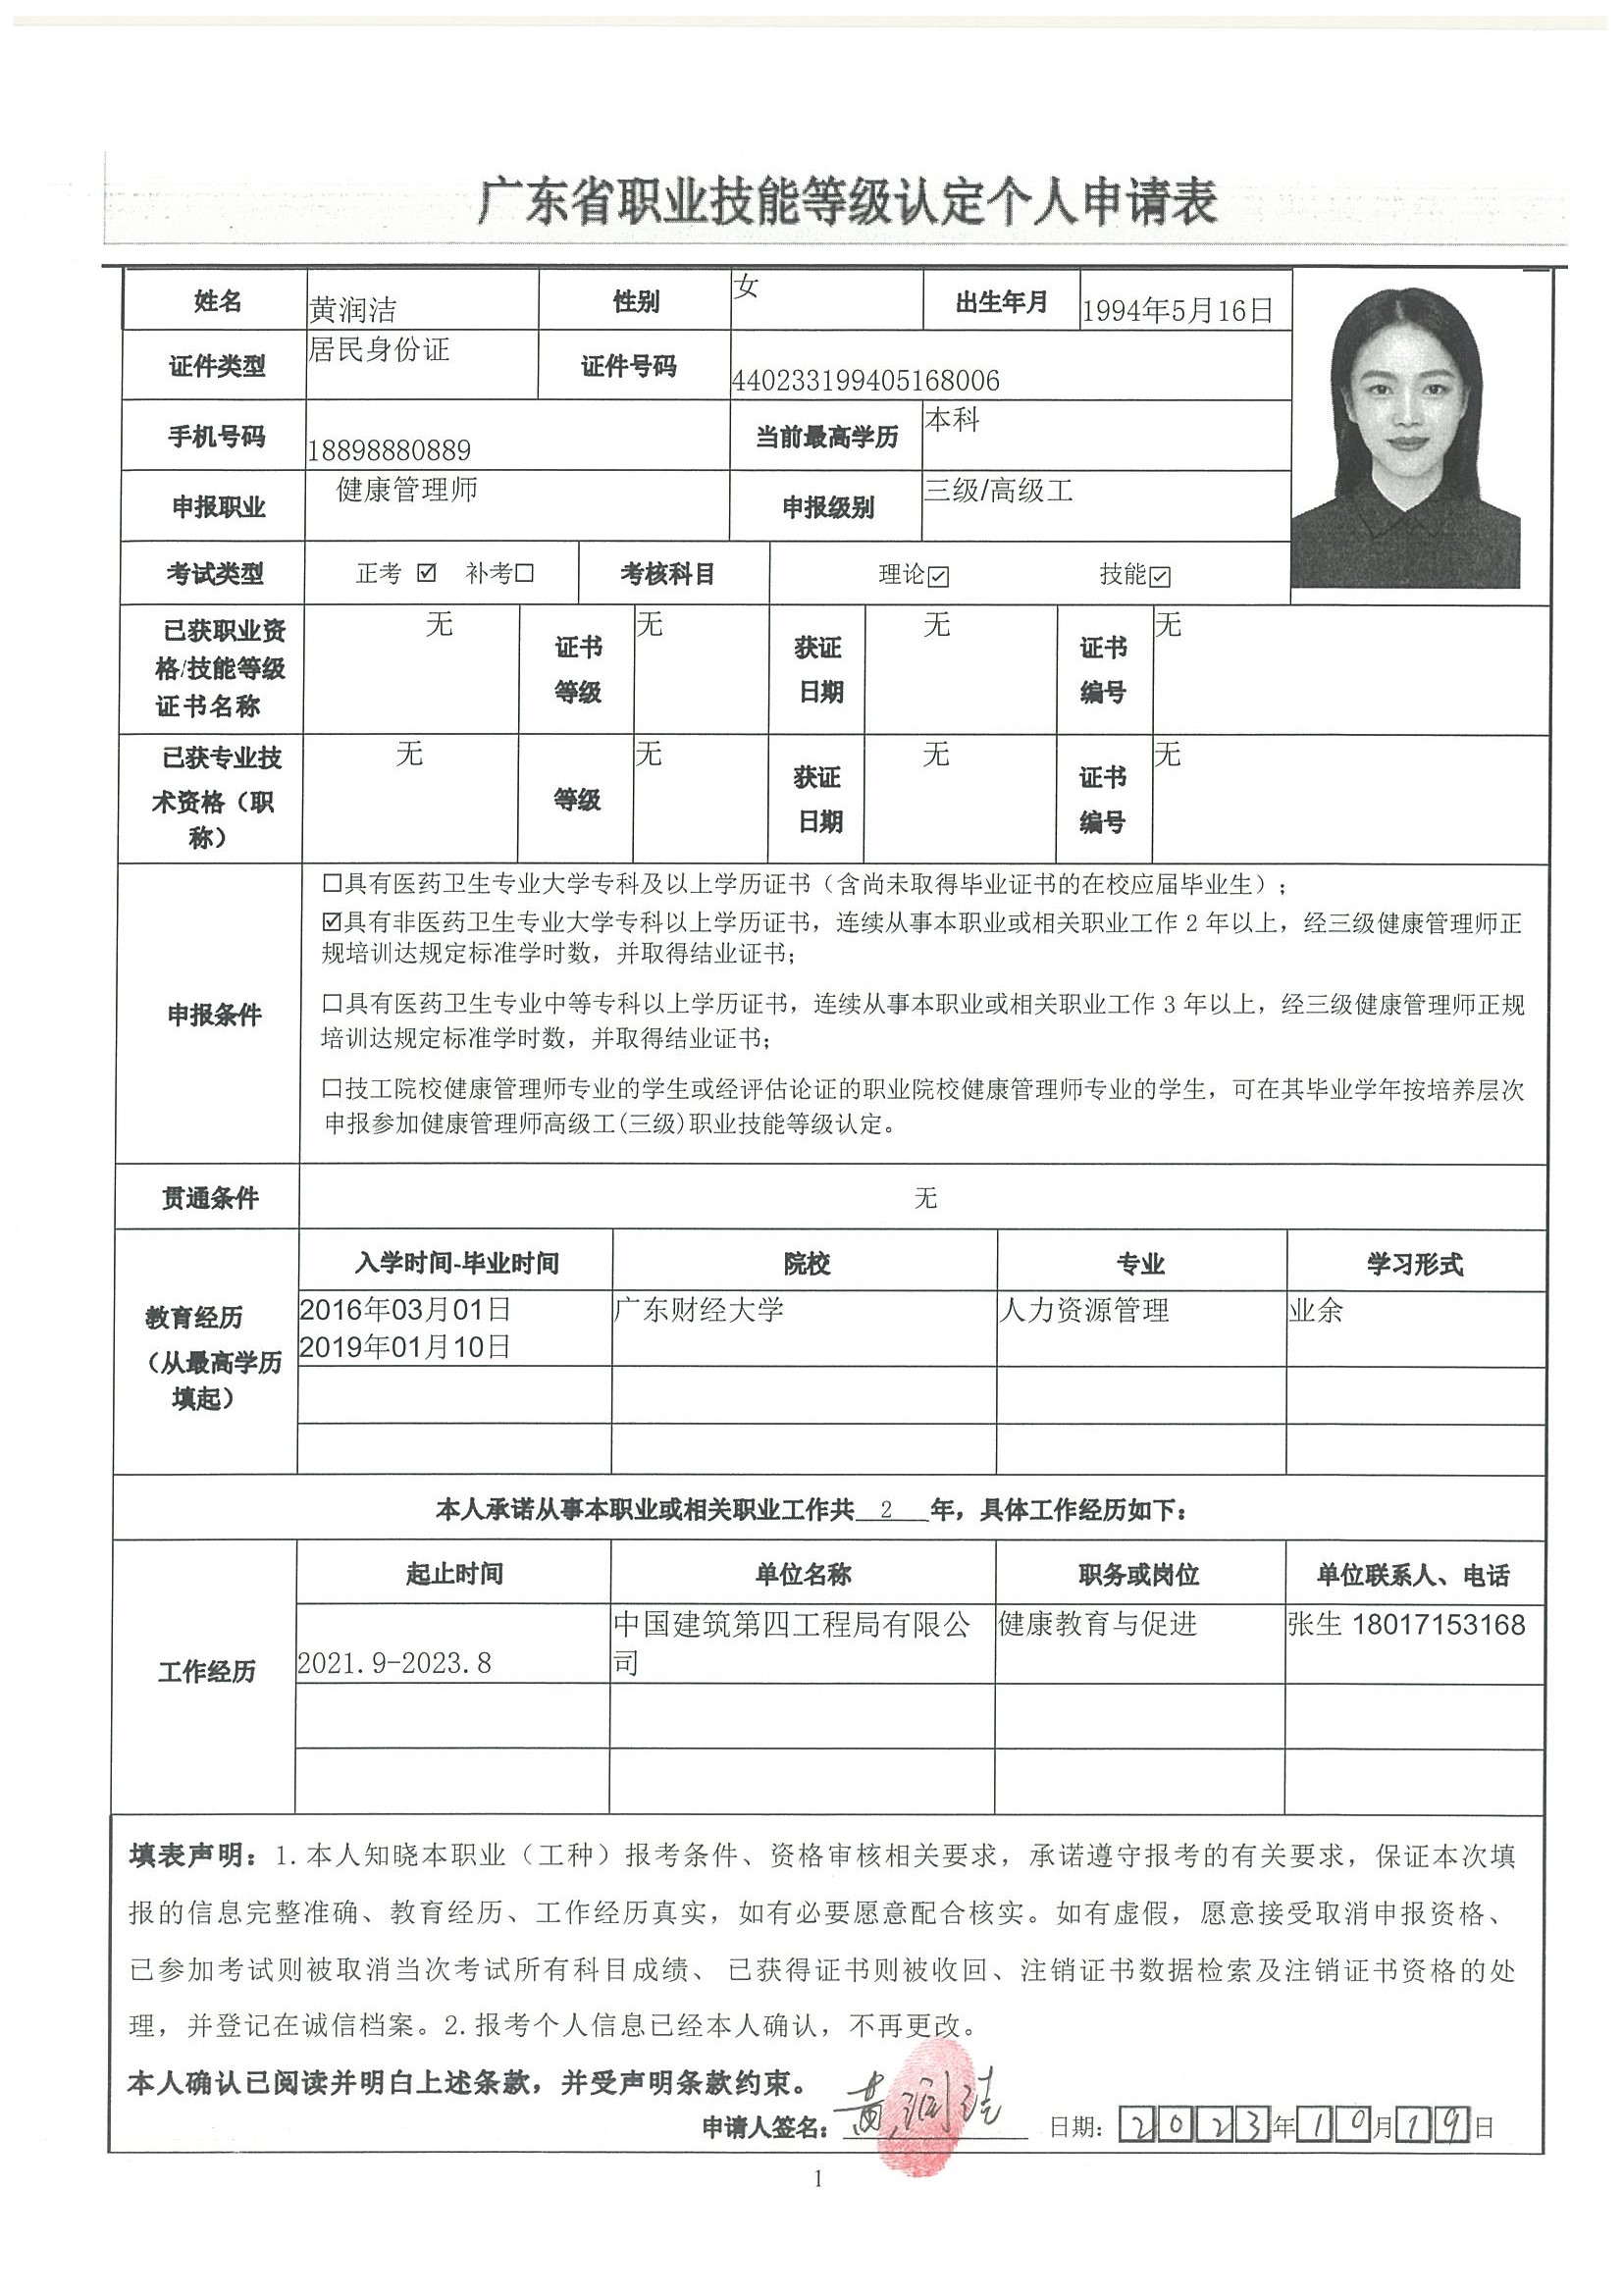 广东省职业技能等级认定个人申请表
姓名 黄润洁 性别 女 出生年月 1994年5月16日
证件类型 居民身份证 证件号码 440233199405168006
手机号码 18898880889 当前最高学历 本科
申报职业 健康管理师 申报级别 三级/高级工
考试类型 正考 ☑ 补考☐ 考核科目 理论☑ 技能☑
已获职业资
格/技能等级
证书名称
无
证书
等级
无
获证
日期
无
证书
编号
无
已获专业技
术资格（职
称）
无
等级
无
获证
日期
无
证书
编号
无
申报条件
☐具有医药卫生专业大学专科及以上学历证书（含尚未取得毕业证书的在校应届毕业生）；
☑具有非医药卫生专业大学专科以上学历证书，连续从事本职业或相关职业工作 2 年以上，经三级健康管理师正
规培训达规定标准学时数，并取得结业证书；
☐具有医药卫生专业中等专科以上学历证书，连续从事本职业或相关职业工作 3 年以上，经三级健康管理师正规
培训达规定标准学时数，并取得结业证书；
☐技工院校健康管理师专业的学生或经评估论证的职业院校健康管理师专业的学生，可在其毕业学年按培养层次
申报参加健康管理师高级工(三级)职业技能等级认定。
贯通条件 无
教育经历
（从最高学历
填起）
入学时间-毕业时间 院校 专业 学习形式
2016年03月01日 广东财经大学 人力资源管理 业余
2019年01月10日
本人承诺从事本职业或相关职业工作共 2 年，具体工作经历如下：
工作经历
起止时间 单位名称 职务或岗位 单位联系人、电话
2021.9-2023.8
中国建筑第四工程局有限公
司
健康教育与促进
张生 18017153168
填表声明：1.本人知晓本职业（工种）报考条件、资格审核相关要求，承诺遵守报考的有关要求，保证本次填
报的信息完整准确、教育经历、工作经历真实，如有必要愿意配合核实。如有虚假，愿意接受取消申报资格、
已参加考试则被取消当次考试所有科目成绩、 已获得证书则被收回、注销证书数据检索及注销证书资格的处
理，并登记在诚信档案。2.报考个人信息已经本人确认，不再更改。
本人确认已阅读并明白上述条款，并受声明条款约束。
申请人签名：黄润洁 日期：2023年10月19日
1